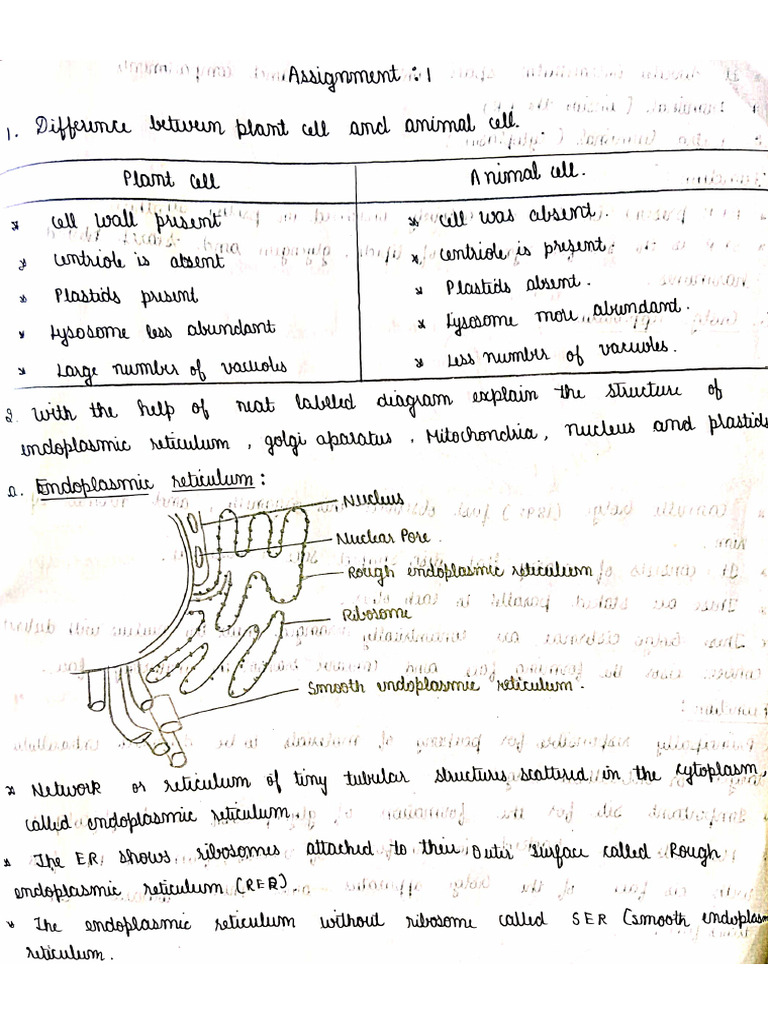 Assignment : 1
1. Difference between plant cell and animal cell.
Plant cell
Animal cell.
* Cell wall present
* Cell was absent.
* Centriole is absent
* Centriole is present
* Plastids present
* Plastids absent.
* Lysosome less abundant
* Lysosome more abundant.
* Large number of vacuoles
* Less number of vacuoles.
2. With the help of neat labeled diagram explain the structure of
endoplasmic reticulum, golgi aparatus, Mitochondria, nucleus and plastids
a. Endoplasmic reticulum :
Nucleus
Nuclear Pore.
Rough endoplasmic reticulium
Ribosome
Smooth endoplasmic reticulum.
* Network or reticulum of tiny tubular structures scattered in the cytoplasm,
called endoplasmic reticulum.
* The ER shows ribosomes attached to their outer surface called Rough
endoplasmic reticulum (RER)
* The endoplasmic reticulum without ribosome called SER (smooth endoplasm
reticulum.